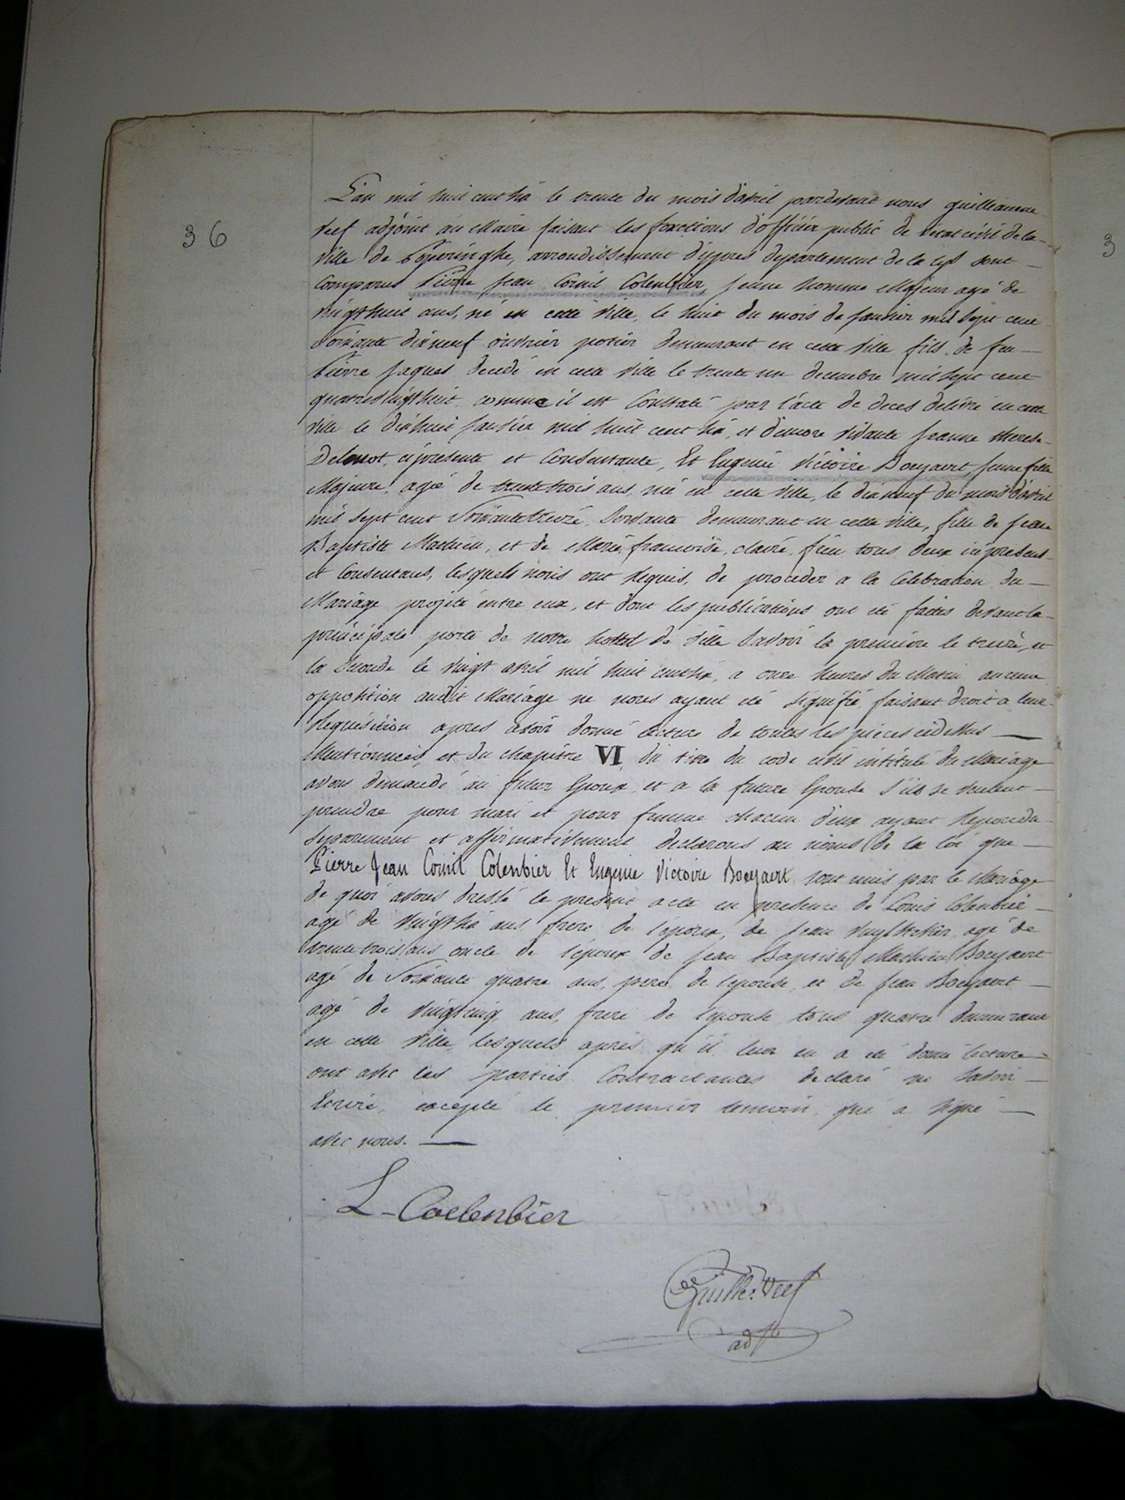 36
L'an mil huit cent six le trente du mois d'avril pardevant nous guilleaume
Vref adjoint au Maire faisant les fonctions d'officier public de l'etat civil de la
ville de Poperinghe, arrondissement d'ypres departement de la Lys sont
comparus Pierre Jean Cornil Colenbier, jeune homme Majeur agé de
vingthuit ans, né en cette ville, le huit du mois de janvier mil sept cent
soixante dixneuf ouvrier potier demeurant en cette ville fils de feu
Pierre Jaques decedé en cette ville le trente un decembre mil sept cent
quatrevingthuit comme il est Constaté par l'acte de deces delivré en cette
ville le dixhuit janvier mil huit cent six, et d'encore vivante Jeanne therese
ci presente et Consentante, Et Eugenie Victoire Boeyaert jeune fille
Majeure, agé de trente trois ans, née en cette ville, le dixneuf du mois d'avril
mil sept cent Soixantetreize, Servante demeurant en cette ville, fille de Jean
Baptiste Mathieu, et de Marie francoise, claire, tous deux ci presents
et Consentans, lesquels nous ont requis, de proceder a la Celebration du
Mariage projeté entre eux, et dont les publications ont été faites devant la
principale porte de notre hottel de ville Savoir la premiere le treize, et
la seconde le vingt avril mil huit cent six, a onze heures du Matin, aucune
opposition audit Mariage ne nous ayant été signifié faisant droit a leur
requisition apres avoir donné lecture de toutes les pieces cidessus
Mentionnées, et du chapitre VI, du titre du code civil intitulé du Mariage
avons demandé au futur Epoux et a la future Epouse s'ils se veulent
prendre pour mari et pour femme chacun d'eux ayant repondu
separement et affirmativement declarons au nom de la loi que
Pierre Jean Cornil Colenbier Et Eugenie Victoire Boeyaert sont unis par le Mariage
de quoi avons dressé le present acte en presence de Louis Colenbier
agé de vingtsix ans frere de l'epoux, de Jean agé de
trente trois ans oncle de l'époux de Jean Baptiste Mathieu Boeyaert
agé de Soixante quatre ans, pere de l'epouse, et de Jean Boeyaert
agé de vingtcinq ans frere de l'epouse tous quatre demeurans
en cette ville, lesquels apres qu'il leur en a été donné lecture
ont avec les parties Contractantes declaré ne Savoir
Ecrire, excepté le premier temoin, qui a signé
avec nous.
L. Coelenbier
Guille. Vref
adjt
3